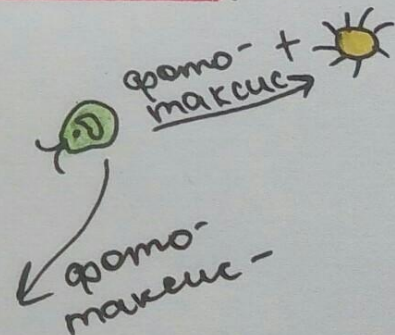 фото- +
таксис
фото-
таксис -